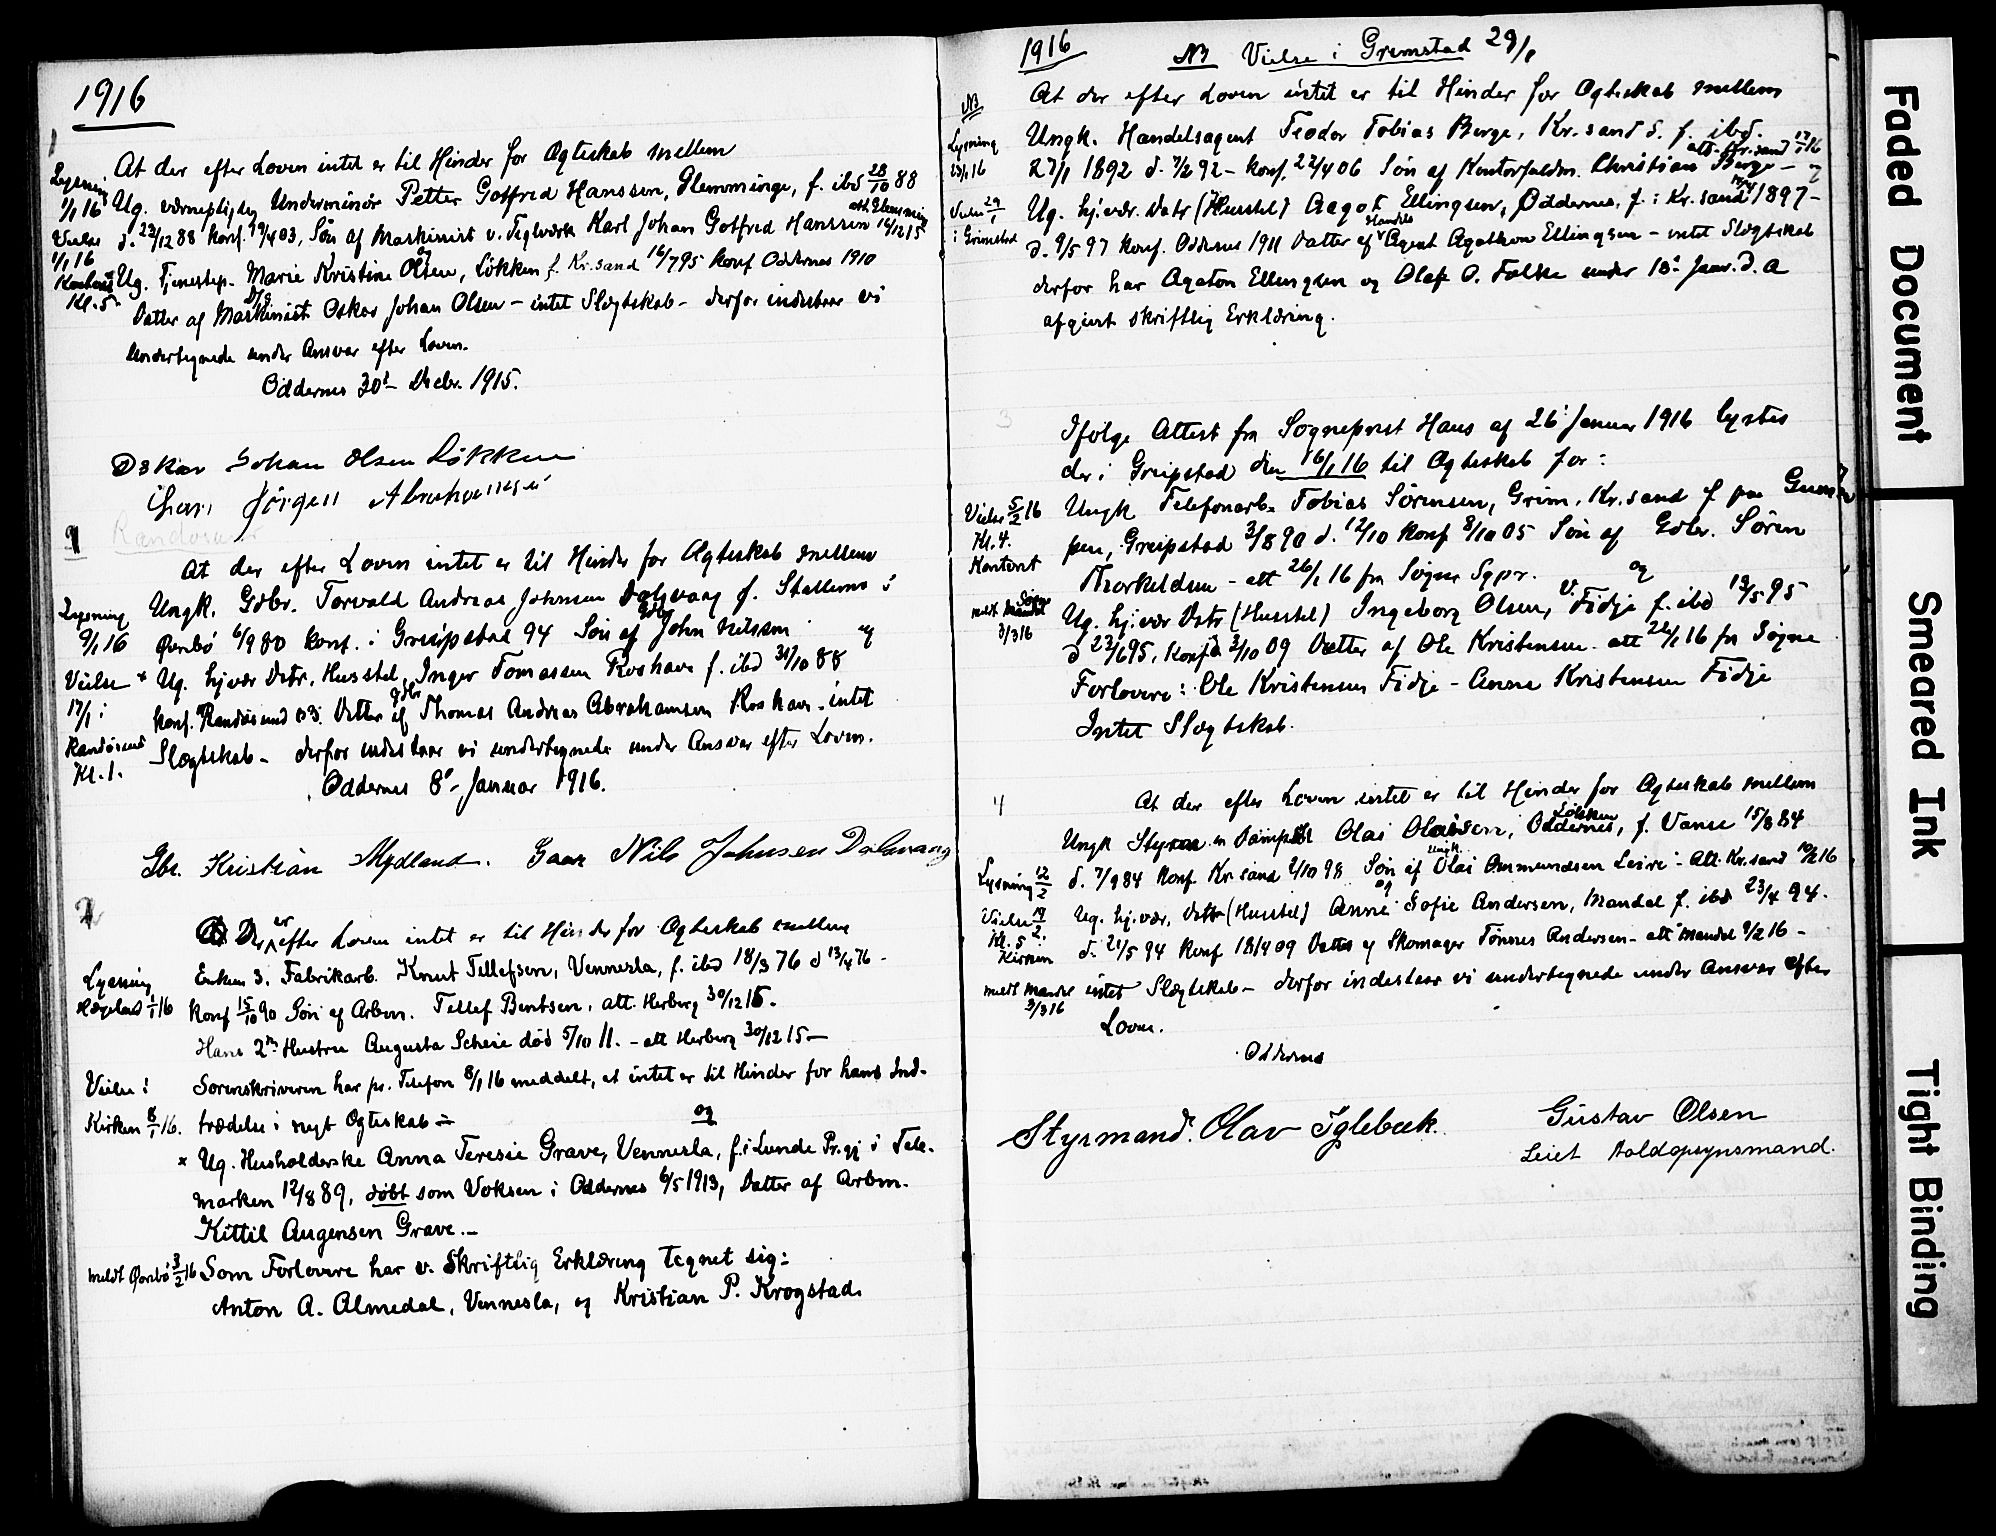 1916
1
At der efter Loven intet er til Hinder for Ægteskab mellem
Lysning
1/1 16
Ug. værnepligtig Underminør Petter Gotfred Hanssen, Glemminge, f. ibd 28/10 88
att. Glemming
16/12 15
Vielse
1/1 16
Kl. 5
d. 23/12 88 konf. 19/4 03, Søn af Maskinist v. Teglværk Karl Johan Gotfred Hanssen
og
Ug. Tjenestep. Marie Kristine Olsen, Løkken f. Kr.sand 16/7 95 konf Oddernes 1910
Datter af Maskinist Oskar Johan Olsen – intet Slægtskab – derfor indestaar vi
Undertegnede under Ansvar efter Loven.
Oddernes 30' Decbr. 1915.
Oskar Johan Olsen Løkken
Jørgen
1
Randøsund
At der efter Loven intet er til Hinder for Ægteskab mellem
Lysning
9/1 16
Ungk. Gdbr. Torvald Andreas Johnsen Dalsvaag f. Stallemo i
Gdbr
Øvrebø 6/9 80 konf. i Greipstad 94 Søn af John Nilssen og
Vielse
17/1 i
Randøsund
Kl. 1.
* Ug. hj.vær Datr. Husstel, Inger Tomassen Roshavn f. ibd 31/10 88
Gdbr
konf. Randøsund 03. Datter af Thomas Andreas Abrahamsen Roshavn. intet
Slægtskab – derfor indestaar vi undertegnede under Ansvar efter Loven.
Oddernes 8' Januar 1916.
Gbr. Kristian Mydland. Gaar Nils Johnsen Dalsvaag
2
er
Der efter Loven intet er til Hinder for Ægteskab mellem
Lysning
Hægeland 1/1 16
Enkem 3. Fabrikarb. Knut Tellefsen, Vennesla, f. ibd 18/3 76 d 13/4 76 –
konf 15/10 90 Søn af Arbm. Tellef Bentsen, att. Herberg 30/12 15.
Hans 2n Hustru Augusta Scheie død 5/10 11. – att Herberg 30/12 15 –
Vielse i
Kirken 8/1 16.
Sorenskriveren har pr. Telefon 8/1 16 meddelt, at intet er til Hinder for hans Ind-
trædelse i nyt Ægteskab –
og
* Ug. Husholderske Anna Teresie Grave, Vennesla, f. i Lunde Pr.gj i Tele-
marken 12/8 89, døbt som Voksen i Oddernes 6/5 1913, Datter af Arbm.
Kittil Augensen Grave. –
meldt Øvrebø 3/2 16
Som Forlovere har v. Skriftlig Erklæring tegnet sig:
Anton A. Almedal, Vennesla, og Kristian P. Krogstad.
1916
NB Vielse i Grimstad 29/1
NB
At der efter Loven intet er til Hinder for Ægteskab mellem
Lysning
23/1 16
Ungk. Handelsagent Teodor Tobias Berge, Kr.sand S. f. ibd.
att. Kr.sand 17/1 16
27/1 1892 d. 7/2 92 – konf. 22/4 06 Søn af Kontorfuldm. Christian Berge –
Vielse 29/1
i Grimstad
Ug. hj.vær. Datr (Husstel) Aagot Ellingsen, Oddernes, f. i Kr.sand 1897 –
Handels
d. 9/5 97 konf. Oddernes 1911 Datter af Agent Agathon Ellingsen – intet Slægtskab
derfor har Agaton Ellingsen og Olaf O. Falke under 13' Januar d. A
afgivet skriftlig Erklæring.
3
Ifølge Attest fra Sogneprest Haus af 26' Januar 1916 lystes
der i Greipstad den 16/1 16 til Ægteskab for:
Vielse 5/2 16
Kl. 4.
Kontoret
Ungk Telefonarb. Tobias Sørensen, Grim, Kr.sand f paa
pen, Greipstad 3/8 90 d. 12/10 konf 8/10 05 Søn af Gdbr. Søren
Thorkeldsen – att 26/1 16 fra Søgne Sgpr. og
meldt Søgne
3/3 16
Ug. hj.vær Datr (Husstel) Ingeborg Olsen, V. Fidje f. ibd 19/5 95
d 23/6 95, konf 3/10 09 Datter af Ole Kristensen – att 26/1 16 fra Søgne
Forlovere: Ole Kristensen Fidje – Anne Kristensen Fidje
Intet Slægtskab.
4
At der efter Loven intet er til Hinder for Ægteskab mellem
Løkken
Ungk Styrm. Olai Olaisen, Oddernes, f. Vanse 15/3 84
Lysning 12/2
Ungk.
d. 7/9 84 konf Kr.sand 2/10 98 Søn af Olai Ommundsen Leire – Att. Kr.sand 10/2 16
og
Vielse 19/2.
Kl. 5
Kirken
Ug. hj.vær. Datr (Husstel) Anne Sofie Andersen, Mandal f. ibd 23/4 94.
d. 21/5 94 konf 18/4 09 Datter af Skomager Tønnes Andersen – att Mandal 9/2 16 –
meldt Mandal
3/3 16
intet Slægtskab – derfor indestaar vi undertegnede under Ansvar efter
Loven.
Oddernes
Styrmand. Olav Iglebæk.
Gustav Olsen
Toldopsynsmand.
Faded Document
Smeared Ink
Tight Binding